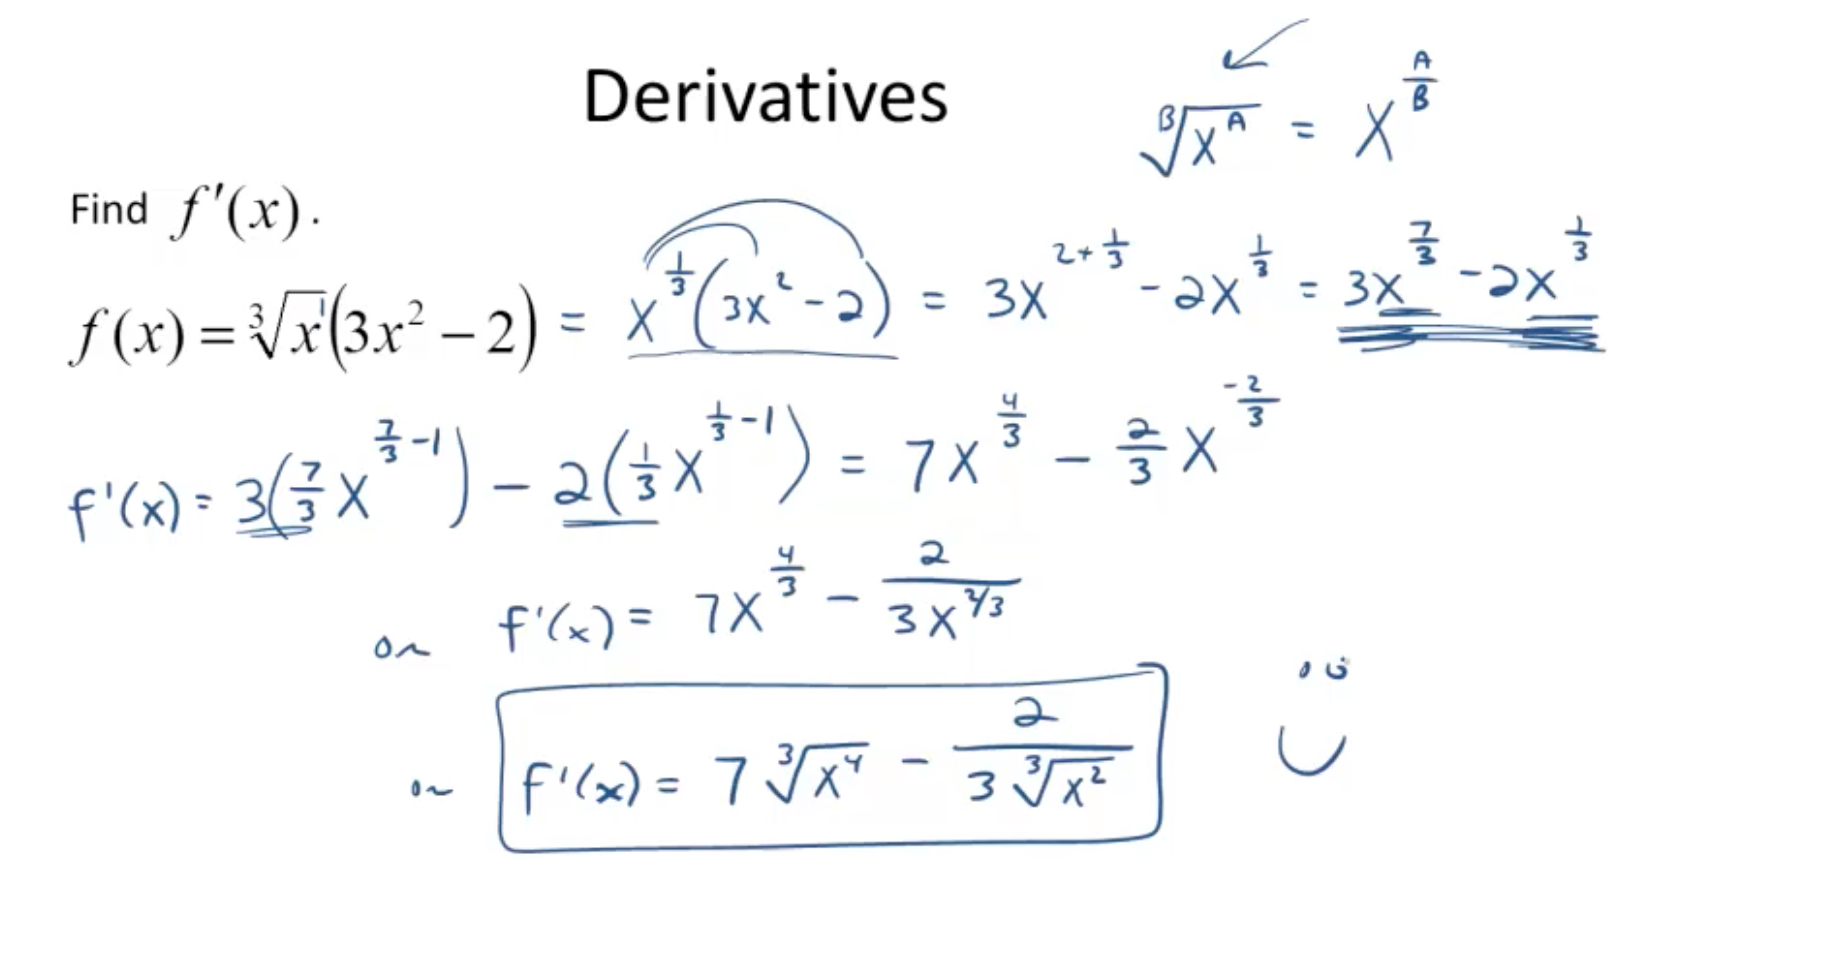 Derivatives
ᴮ√(xᴬ) = x^(A/B)
Find f′(x).
f(x) = ∛x¹(3x² − 2) = x^(1/3)(3x² − 2) = 3x^(2+1/3) − 2x^(1/3) = 3x^(7/3) − 2x^(1/3)
f'(x) = 3(7/3 x^(7/3 −1)) − 2(1/3 x^(1/3 −1)) = 7x^(4/3) − 2/3 x^(−2/3)
or f'(x) = 7x^(4/3) − 2/(3x^(2/3))
or f'(x) = 7∛(x⁴) − 2/(3∛(x²))